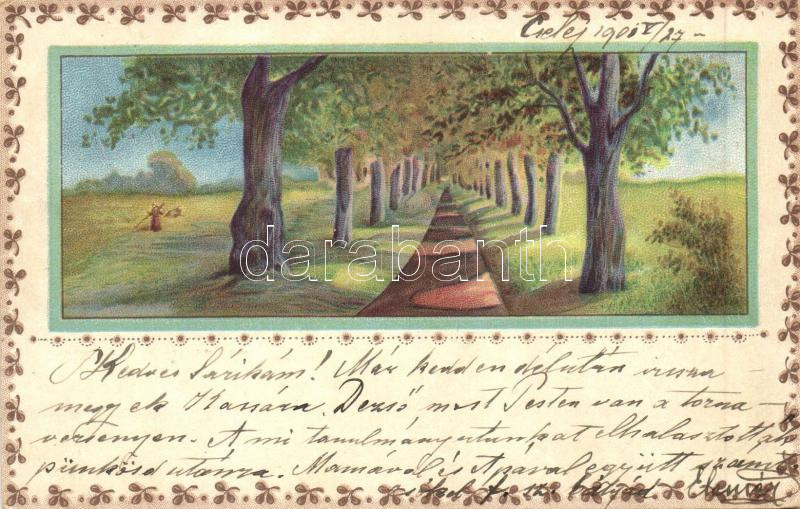 Czelej 1901 V/27
darabanth
Kedves Sárikám! Már kedden délután vissza
megyek Kassára. Dezső most Pesten van a torna
versenyen. A mi tanulmányutunkat elhalasztották
pünkösd utánra. Mamával és Apával együtt
csókol